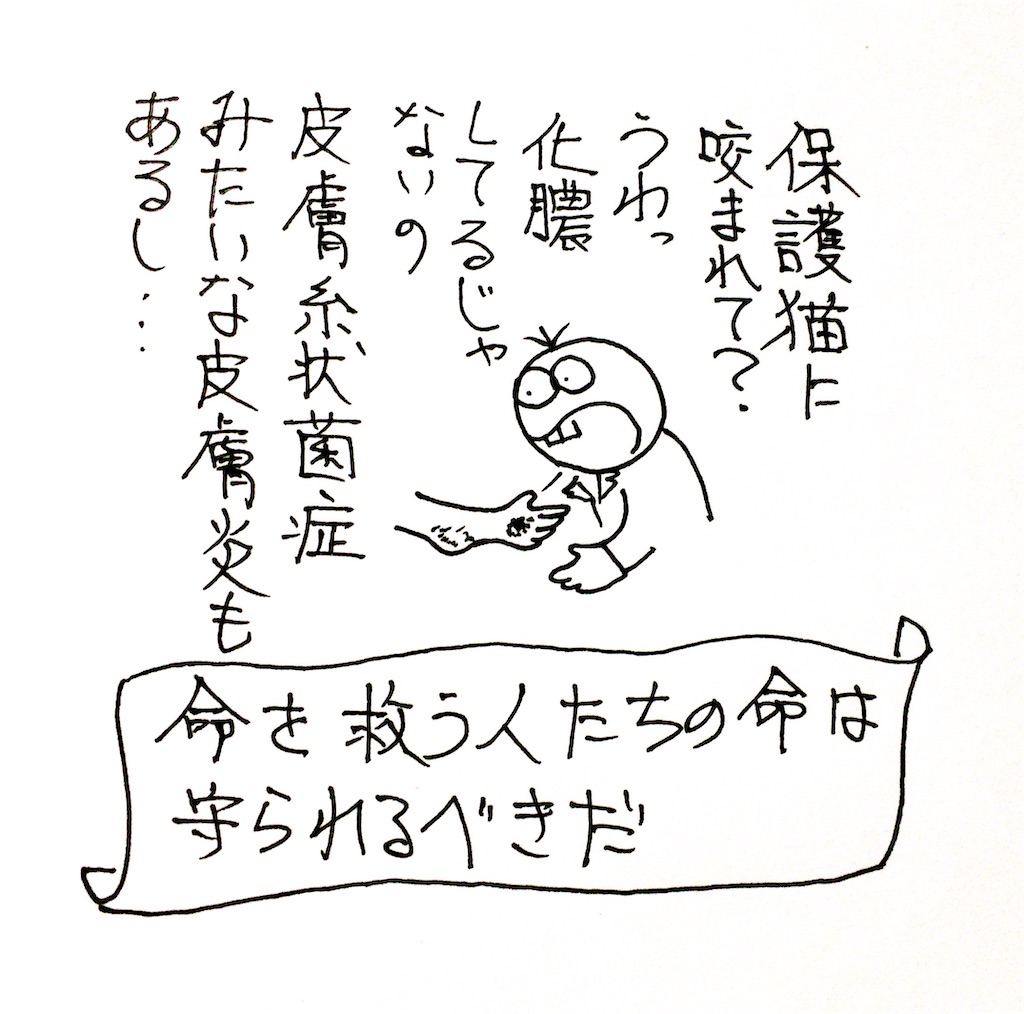 保護猫に
咬まれて？
うわっ
化膿
してるじゃ
ないの
皮膚糸状菌症
みたいな皮膚炎も
あるし…
命を救う人たちの命は
守られるべきだ